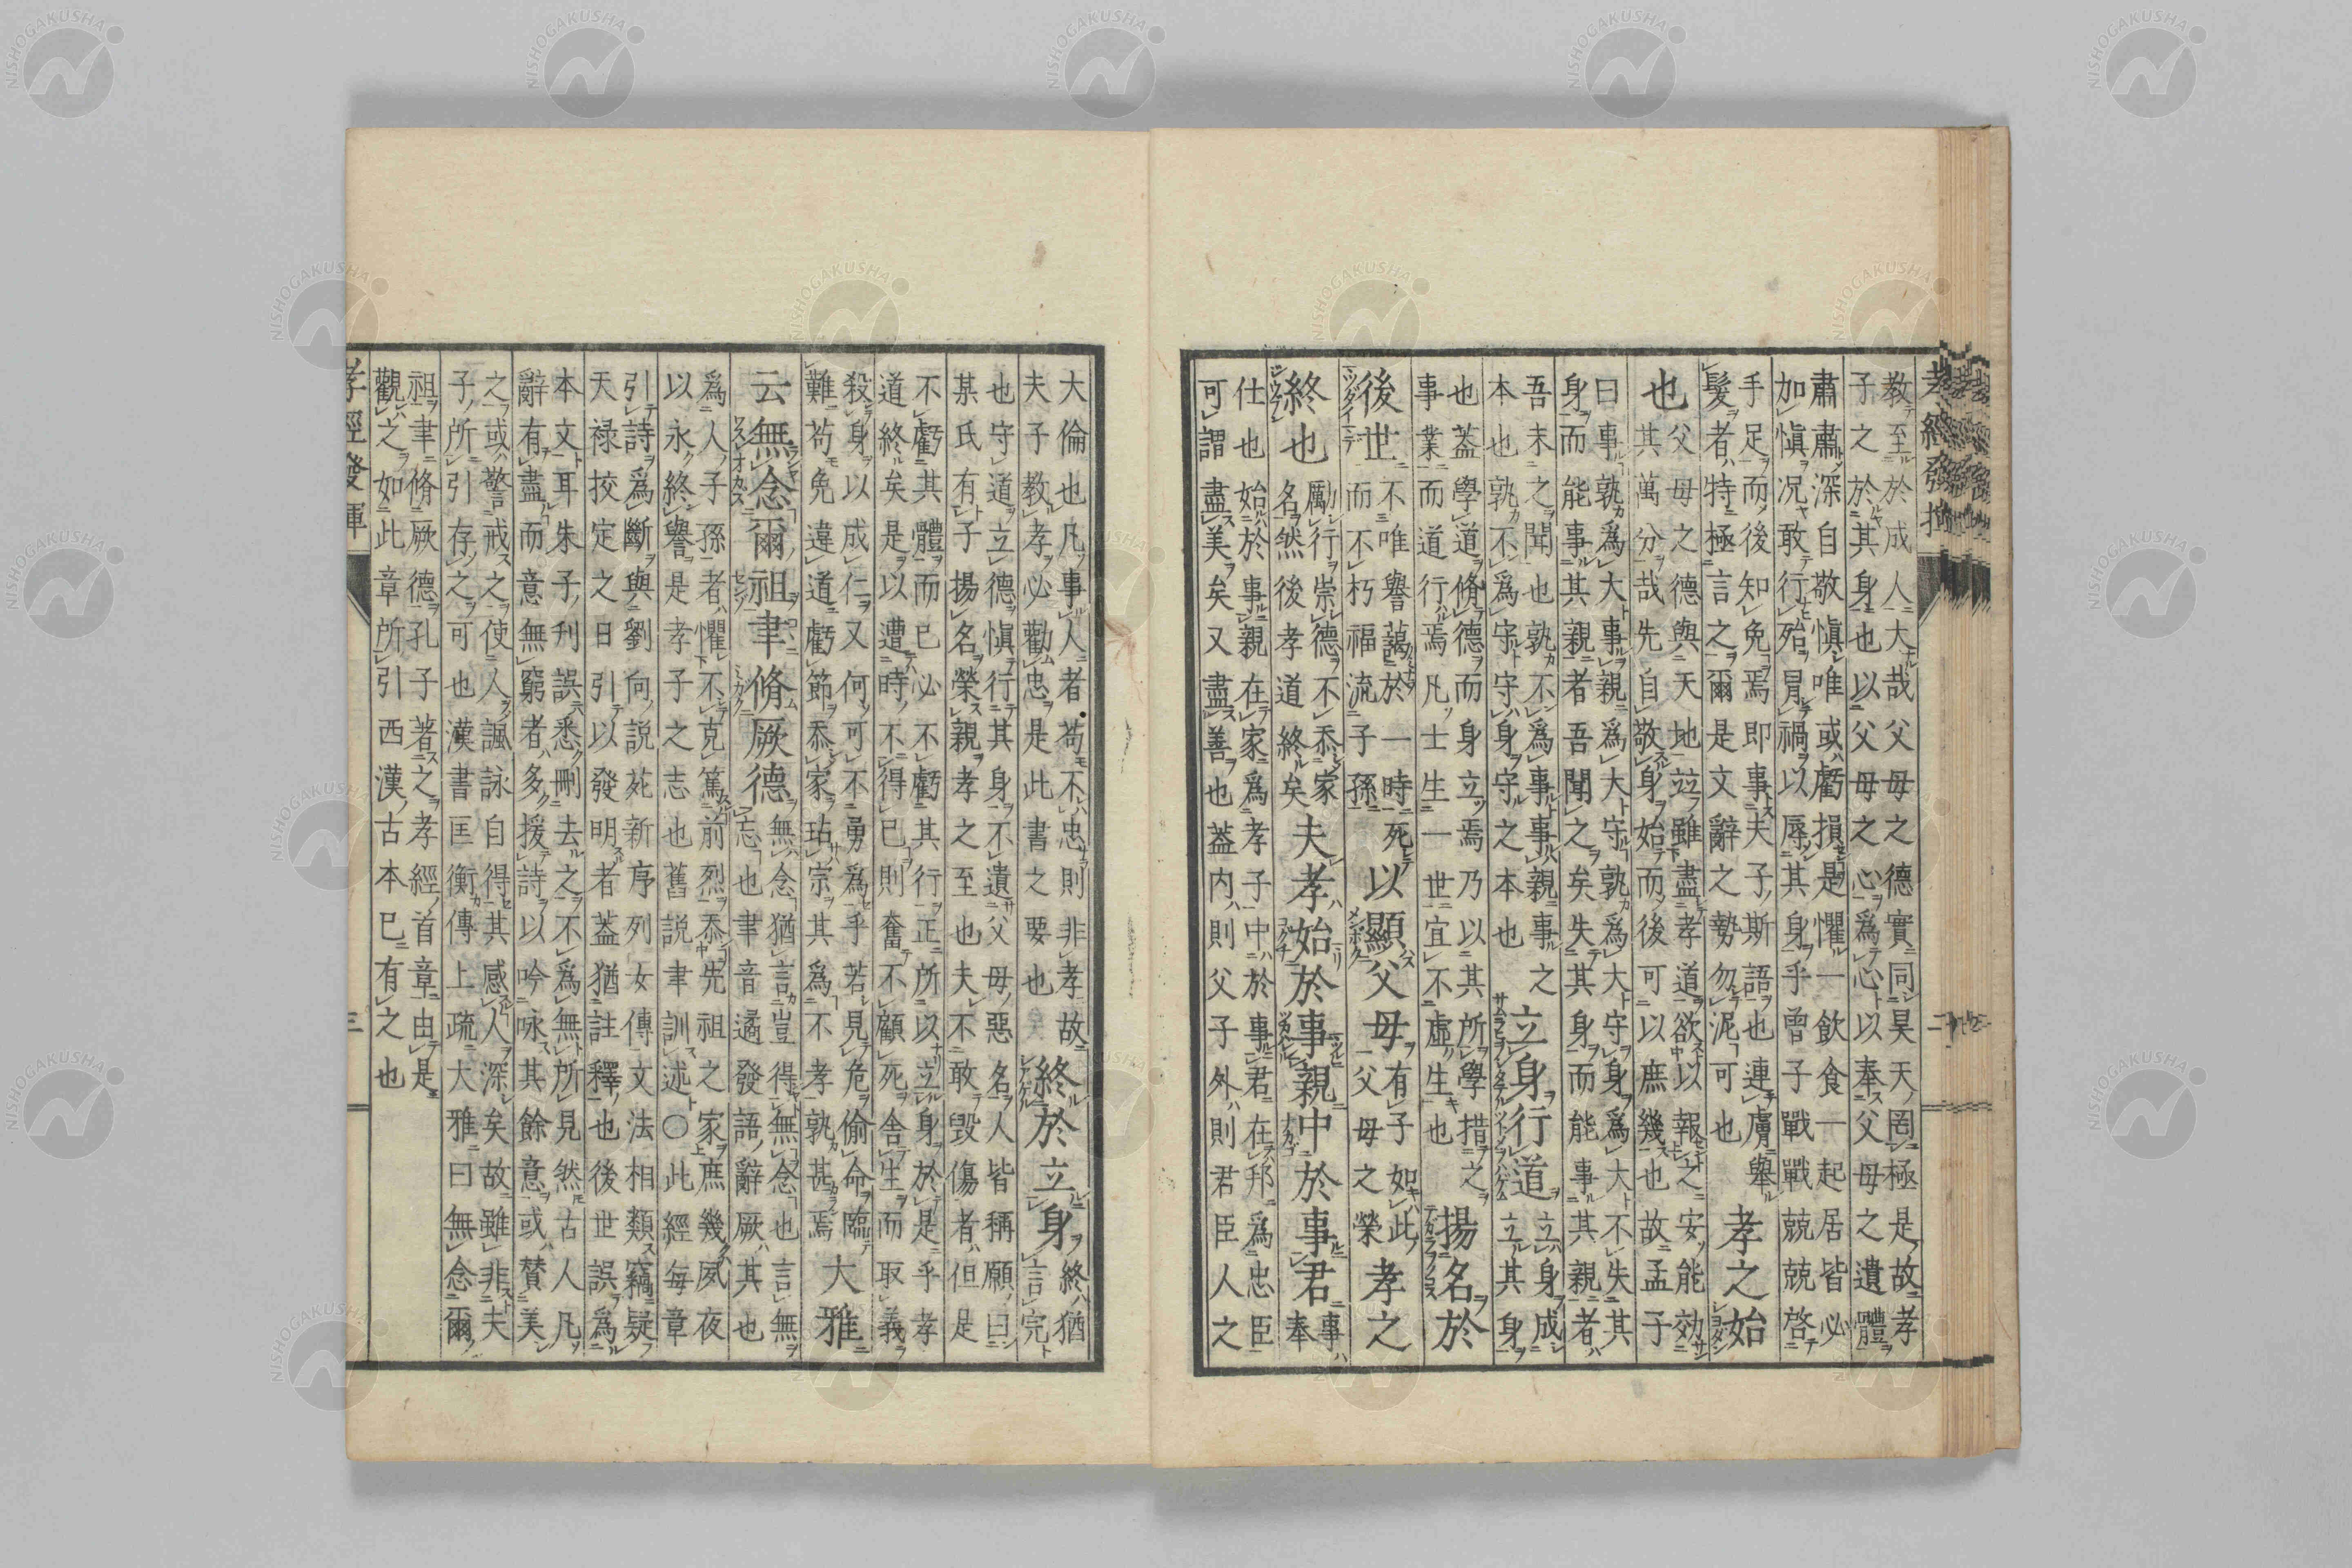 孝經發揮 二
教至於成人大哉父母之德實同昊天罔極是故孝
子之於其身也以父母之心爲心以奉父母之遺體
肅肅深自敬愼唯或虧損是懼一飲食一起居皆必
加愼况敢行殆冒禍以辱其身乎曾子戰戰兢兢啓
手足而後知免焉即事夫子斯語也連膚舉
髮者特極言之爾是文辭之勢勿泥可也
孝之始
也
父母之德與天地竝雖盡孝道欲以報之安能効
其萬分哉先自敬身始而後可以庶幾也故孟子
曰事孰爲大事親爲大守孰爲大守身爲大不失其
身而能事其親者吾聞之矣失其身而能事其親者
吾未之聞也孰不爲事事親事之
本也孰不爲守守身守之本也
立身行道
立身成
立其身
也蓋學道脩德而身立焉乃以其所學措之
事業而道行焉凡士生一世宜不虛生也
揚名於
後世
不唯譽藹於一時死
而不朽福流子孫
以顯父母
有子如此
父母之榮
孝之
終也
勵行崇德不忝家
名然後孝道終矣
夫孝始於事親中於事君
事
奉
仕也始於事親在家爲孝子中於事君在邦爲忠臣
可謂盡美矣又盡善也蓋内則父子外則君臣人之
大倫也凡事人者苟不忠則非孝故
夫子教孝必勸忠是此書之要也
終於立身
終猶
言完
也守道立德愼行其身不遺父母惡名人皆稱願曰
某氏有子揚名榮親孝之至也夫不敢毀傷者但是
不虧其體而已必不虧其行正所以立身於是乎孝
道終矣是以遭時不得已則奮不顧死舍生而取義
殺身以成仁又何可不勇爲乎若見危偷命臨
難苟免違道虧節忝家玷宗其爲不孝孰甚焉
大雅
云無念爾祖聿脩厥德
無念猶言豈得無念也言無
忘也聿音遹發語辭厥其也
爲人子孫者懼不克篤前烈忝先祖之家庶幾夙夜
以永終譽是孝子之志也舊説聿訓述〇此經每章
引詩爲斷與劉向説苑新序列女傳文法相類竊疑
天禄挍定之日引以發明者蓋猶註釋也後世誤爲
本文耳朱子刋誤悉刪去之不爲無所見然古人凡
辭有盡而意無窮者多援詩以吟咏其餘意或賛美
之或警戒之使人諷詠自得其感人深矣故雖非夫
子所引存之可也漢書匡衡傳上疏大雅曰無念爾
祖聿脩厥德孔子著之孝經首章由是
觀之如此章所引西漢古本已有之也
孝經發揮 三